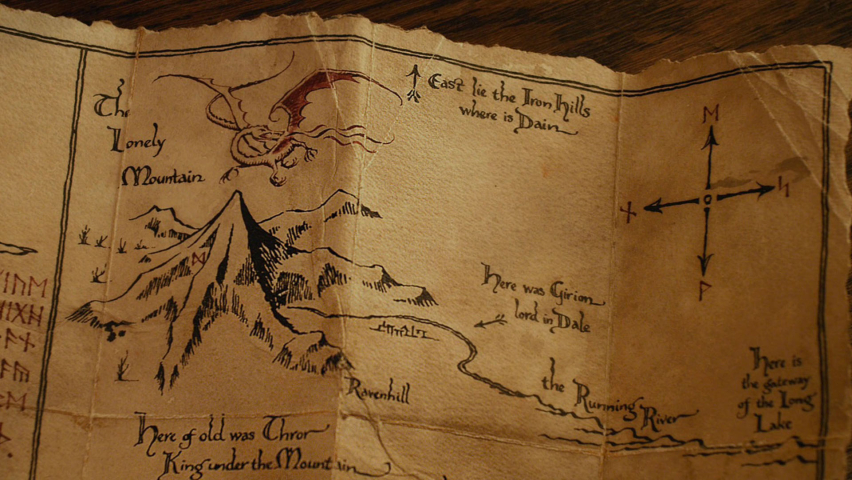 The
Lonely
Mountain
East lie the Iron Hills
where is Dain
ᛖ
ᚾ
ᛋ
ᚹ
Here was Girion
lord in Dale
Ravenhill
the Running River
Here is
the gateway
of the Long
Lake
Here of old was Thror
King under the Mountain